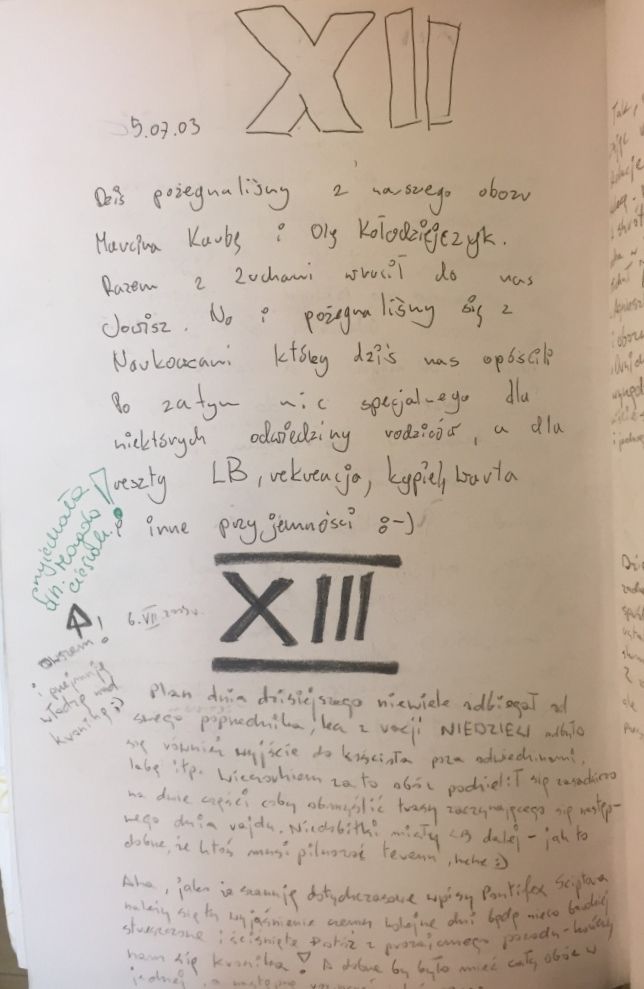 XII
5.07.03
Dziś pożegnaliśmy z naszego obozu
Marcina Kaubę i Olę Kołodziejczyk.
Razem z Zuchami wrucił do nas
Jowisz. No i pożegnaliśmy się z
Naukowcami któży dziś nas opóścili
Po za tym nic specjalnego dla
niektórych odwiedziny rodziców, a dla
reszty LB, rekreacja, kąpiel, warta
i inne przyjemności :-)
przyjechała
dh. Magda
Cieślak!
XIII
6.VII.2003r.
owszem!
i przejmuję
władzę nad
kroniką :)
Plan dnia dzisiejszego niewiele odbiegał od
swego poprzednika, lecz z racji NIEDZIELI odbyło
się również wyjście do kościoła poza odwiedzinami,
labą itp. Wieczorkiem za to obóz podzielił się zasadniczo
na dwie części coby obmyślić trasy zaczynającego się następ-
nego dnia rajdu. Niedobitki miały LB dalej - jak to
dobrze, że ktoś musi pilnować terenu, hehe :)
Aha, jako że szanuję dotychczasowe wpisy Pontifex Sciptora
należy się tu wyjaśnienie czemu kolejne dni będą nieco bardziej
streszczone i ściśnięte Otóż z prozaicznego powodu - kończy
nam się kronika! A dobrze by było mieć cały obóz w
jednej, a